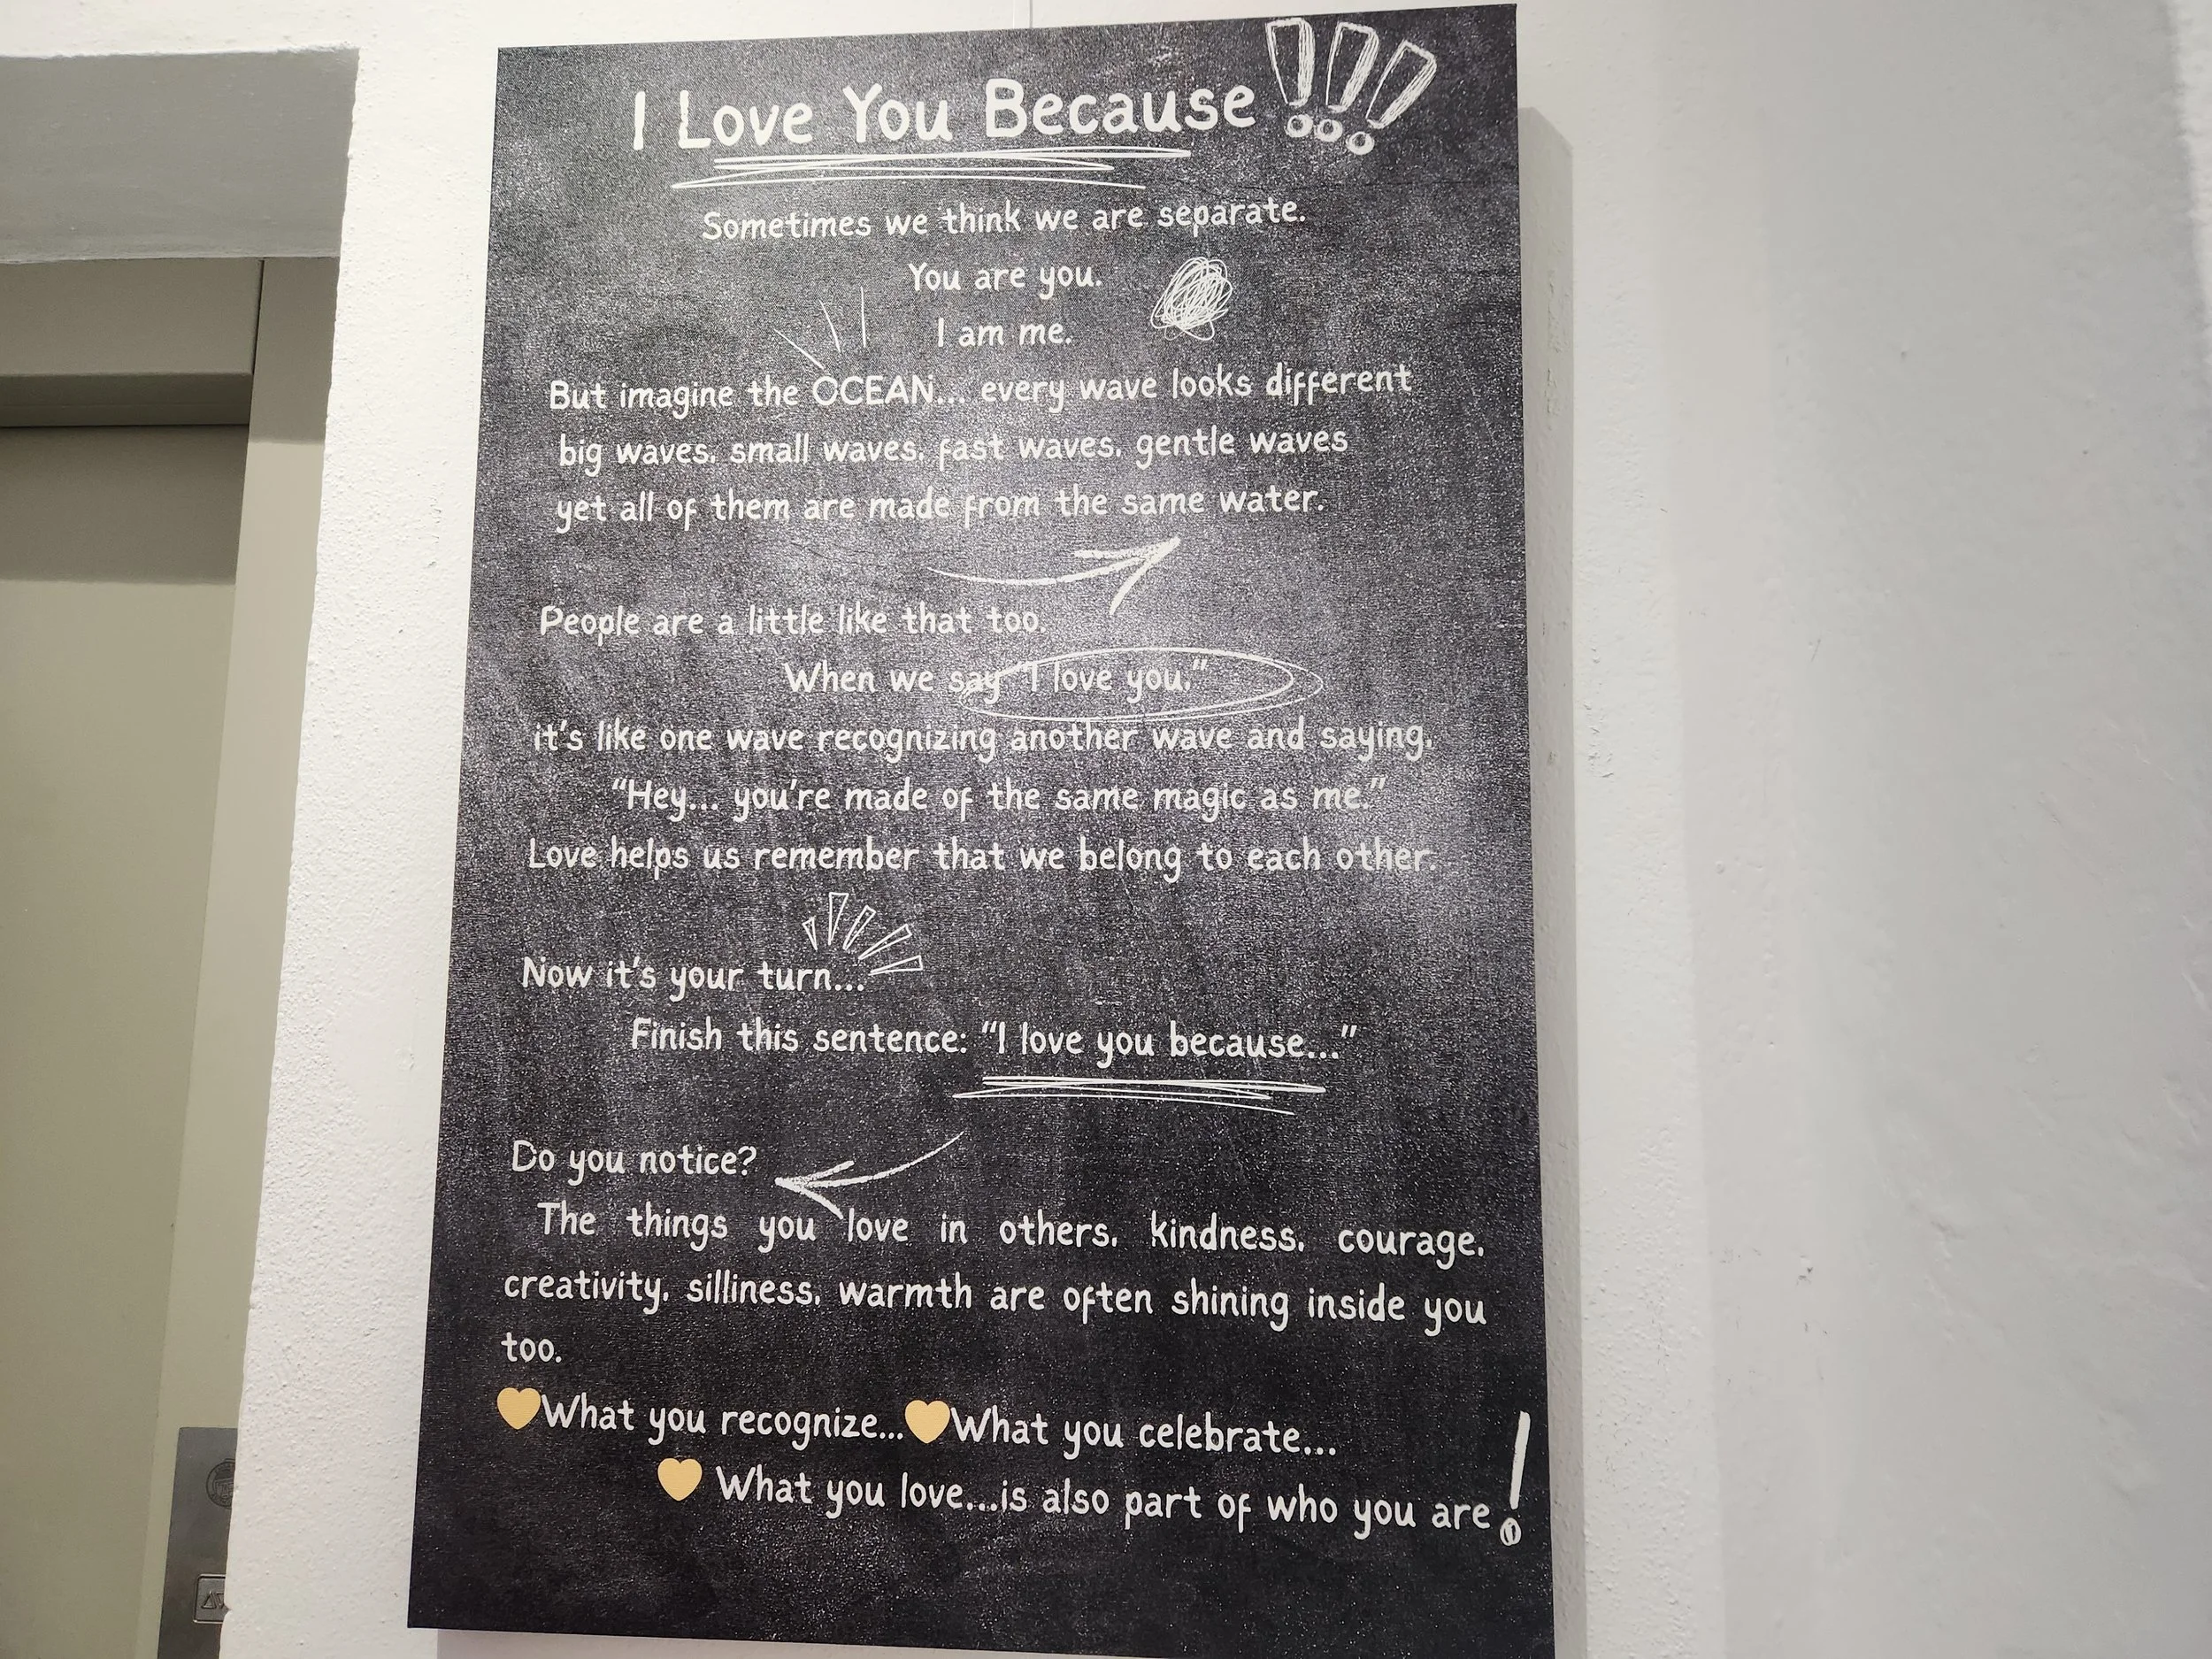 I Love You Because!!!
Sometimes we think we are separate.
You are you.
I am me.
But imagine the OCEAN... every wave looks different
big waves, small waves, fast waves, gentle waves
yet all of them are made from the same water.
People are a little like that too.
When we say "I love you,"
it's like one wave recognizing another wave and saying,
"Hey... you're made of the same magic as me."
Love helps us remember that we belong to each other.
Now it's your turn...
Finish this sentence: "I love you because..."
Do you notice?
The things you love in others, kindness, courage,
creativity, silliness, warmth are often shining inside you
too.
💛What you recognize...💛What you celebrate...
💛 What you love...is also part of who you are!